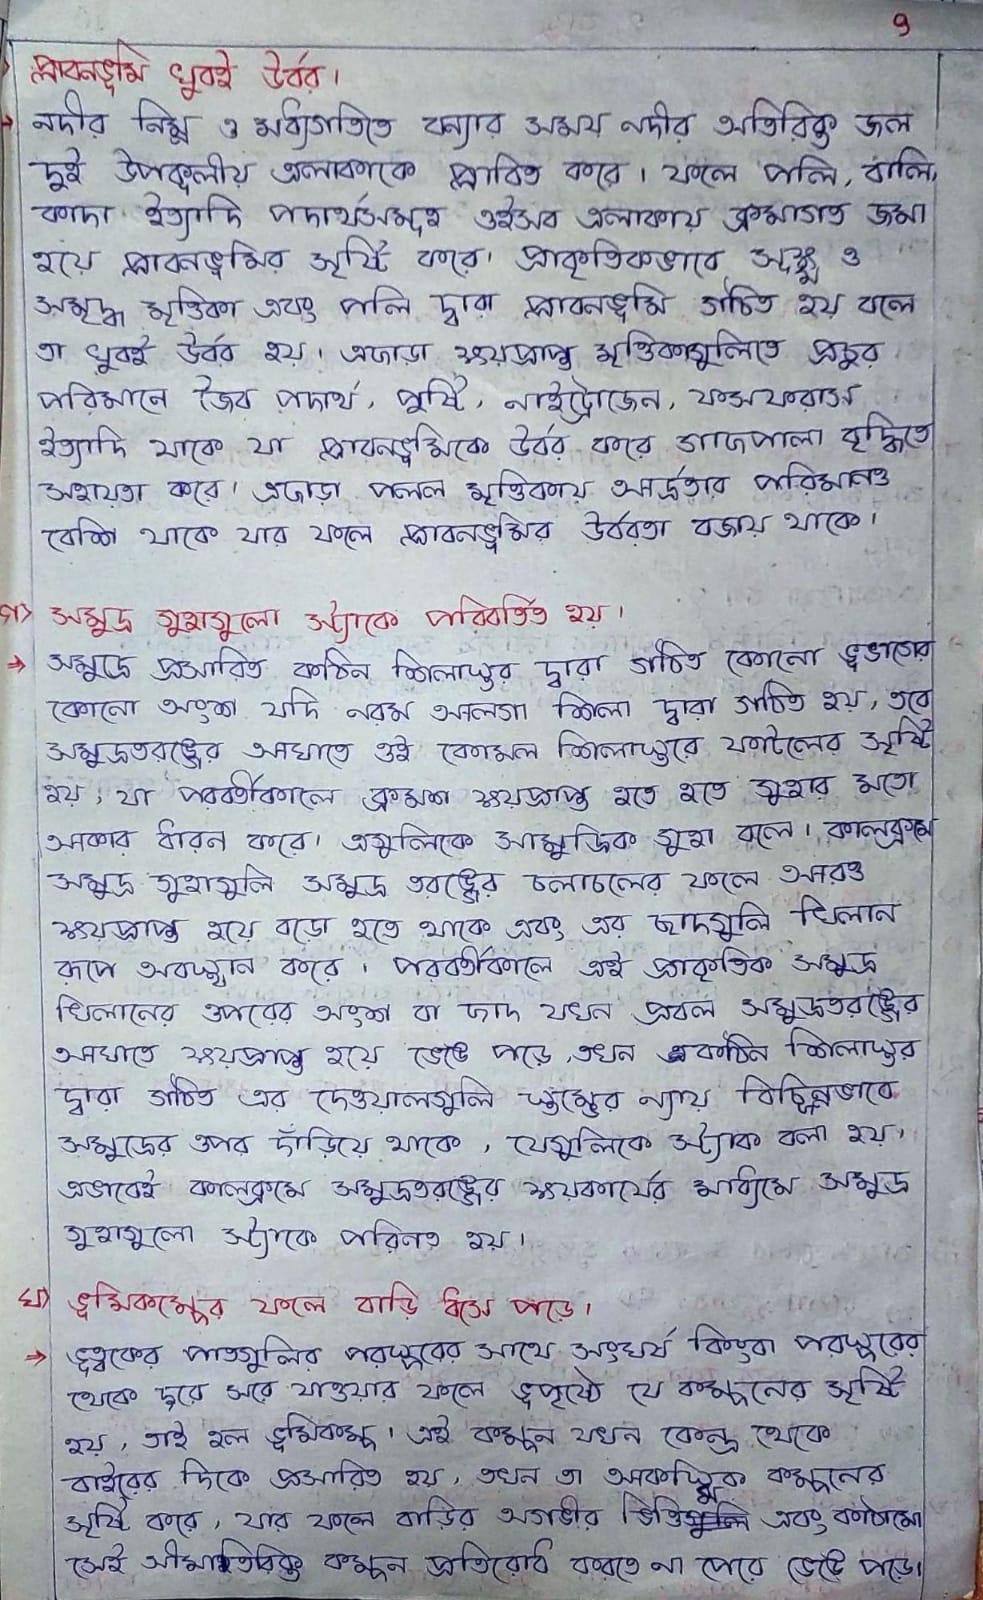 ৭
প্লাবনভূমি খুবই উর্বর।
→ নদীর নিম্ন ও মধ্যগতিতে বন্যার সময় নদীর অতিরিক্ত জল
দুই উপকূলীয় এলাকাকে প্লাবিত করে। ফলে পলি, বালি,
কাদা ইত্যাদি পদার্থসমূহ ওইসব এলাকায় ক্রমাগত জমা
হয়ে প্লাবনভূমির সৃষ্টি করে। প্রাকৃতিকভাবে সূক্ষ্ম ও
সমৃদ্ধ মৃত্তিকা এবং পলি দ্বারা প্লাবনভূমি গঠিত হয় বলে
তা খুবই উর্বর হয়। এছাড়া ক্ষয়প্রাপ্ত মৃত্তিকাগুলিতে প্রচুর
পরিমানে জৈব পদার্থ, পুষ্টি, নাইট্রোজেন, ফসফরাস
ইত্যাদি থাকে যা প্লাবনভূমিকে উর্বর করে গাছপালা বৃদ্ধিতে
সহায়তা করে। এছাড়া পলল মৃত্তিকায় আর্দ্রতার পরিমানও
বেশি থাকে যার ফলে প্লাবনভূমির উর্বরতা বজায় থাকে।
গ) সমুদ্র গুহাগুলো স্ট্যাকে পরিবর্তিত হয়।
→ সমুদ্রে প্রসারিত কঠিন শিলাস্তর দ্বারা গঠিত কোনো ভূভাগের
কোনো অংশ যদি নরম আলগা শিলা দ্বারা গঠিত হয়, তবে
সমুদ্রতরঙ্গের আঘাতে ওই কোমল শিলাস্তরে ফাটলের সৃষ্টি
হয়, যা পরবর্তীকালে ক্রমশ ক্ষয়প্রাপ্ত হতে হতে গুহার মতো
আকার ধারন করে। এগুলিকে সামুদ্রিক গুহা বলে। কালক্রমে
সমুদ্র গুহাগুলি সমুদ্র তরঙ্গের চলাচলের ফলে আরও
ক্ষয়প্রাপ্ত হয়ে বড়ো হতে থাকে এবং এর ছাদগুলি খিলান
রূপে অবস্থান করে। পরবর্তীকালে এই প্রাকৃতিক সমুদ্র
খিলানের ওপরের অংশ বা ছাদ যখন প্রবল সমুদ্রতরঙ্গের
আঘাতে ক্ষয়প্রাপ্ত হয়ে ভেঙে পড়ে, তখন কঠিন শিলাস্তর
দ্বারা গঠিত এর দেওয়ালগুলি স্তম্ভের ন্যায় বিচ্ছিন্নভাবে
সমুদ্রের ওপর দাঁড়িয়ে থাকে, যেগুলিকে স্ট্যাক বলা হয়।
এভাবেই কালক্রমে সমুদ্রতরঙ্গের ক্ষয়কার্যের মাধ্যিমে সমুদ্র
গুহাগুলো স্ট্যাকে পরিনত হয়।
ঘ) ভূমিকম্পের ফলে বাড়ি ধসে পড়ে।
→ ভূত্বকের পাতগুলির পরস্পরের সাথে সংঘর্ষ কিংবা পরস্পরের
থেকে দূরে সরে যাওয়ার ফলে ভূপৃষ্ঠে যে কম্পনের সৃষ্টি
হয়, তাই হল ভূমিকম্প। এই কম্পন যখন কেন্দ্র থেকে
বাইরের দিকে প্রসারিত হয়, তখন তা আকস্মিক কম্পনের
সৃষ্টি করে, যার ফলে বাড়ির অগভীর ভিত্তিগুলি এবং কাঠামো
সেই সীমাতিরিক্ত কম্পন প্রতিরোধ করতে না পেরে ভেঙে পড়ে।